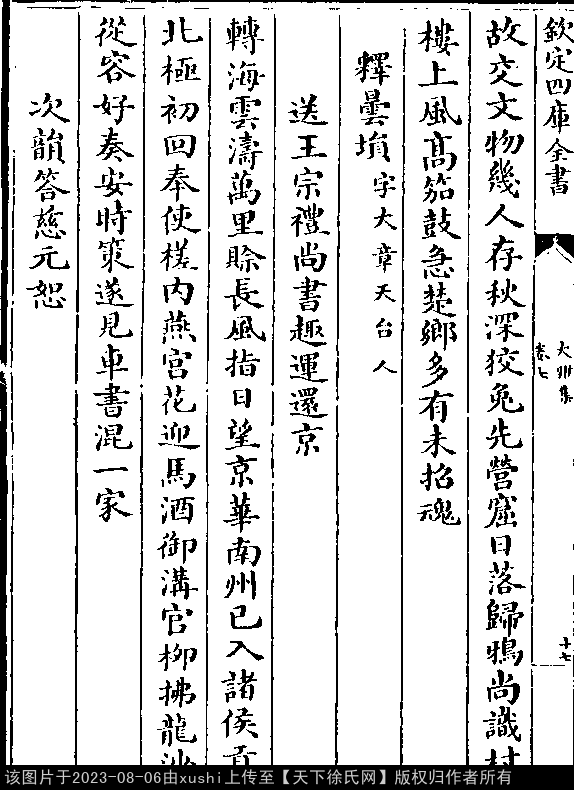 欽定四庫全書
大雅集
卷七
十七
故交文物幾人存秋深狡兔先營窟日落歸鴉尚識村
樓上風髙笳鼓急楚鄉多有未招魂
釋曇塤字大章天台人
送王宗禮尚書趣運還京
轉海雲濤萬里賖長風指日望京華南州已入諸侯貢
北極初回奉使槎内燕宫花迎馬酒御溝官柳拂龍沙
從容好奏安時策遂見車書混一家
次韻答慈元恕
该图片于2023-08-06由xushi上传至【天下徐氏网】版权归作者所有